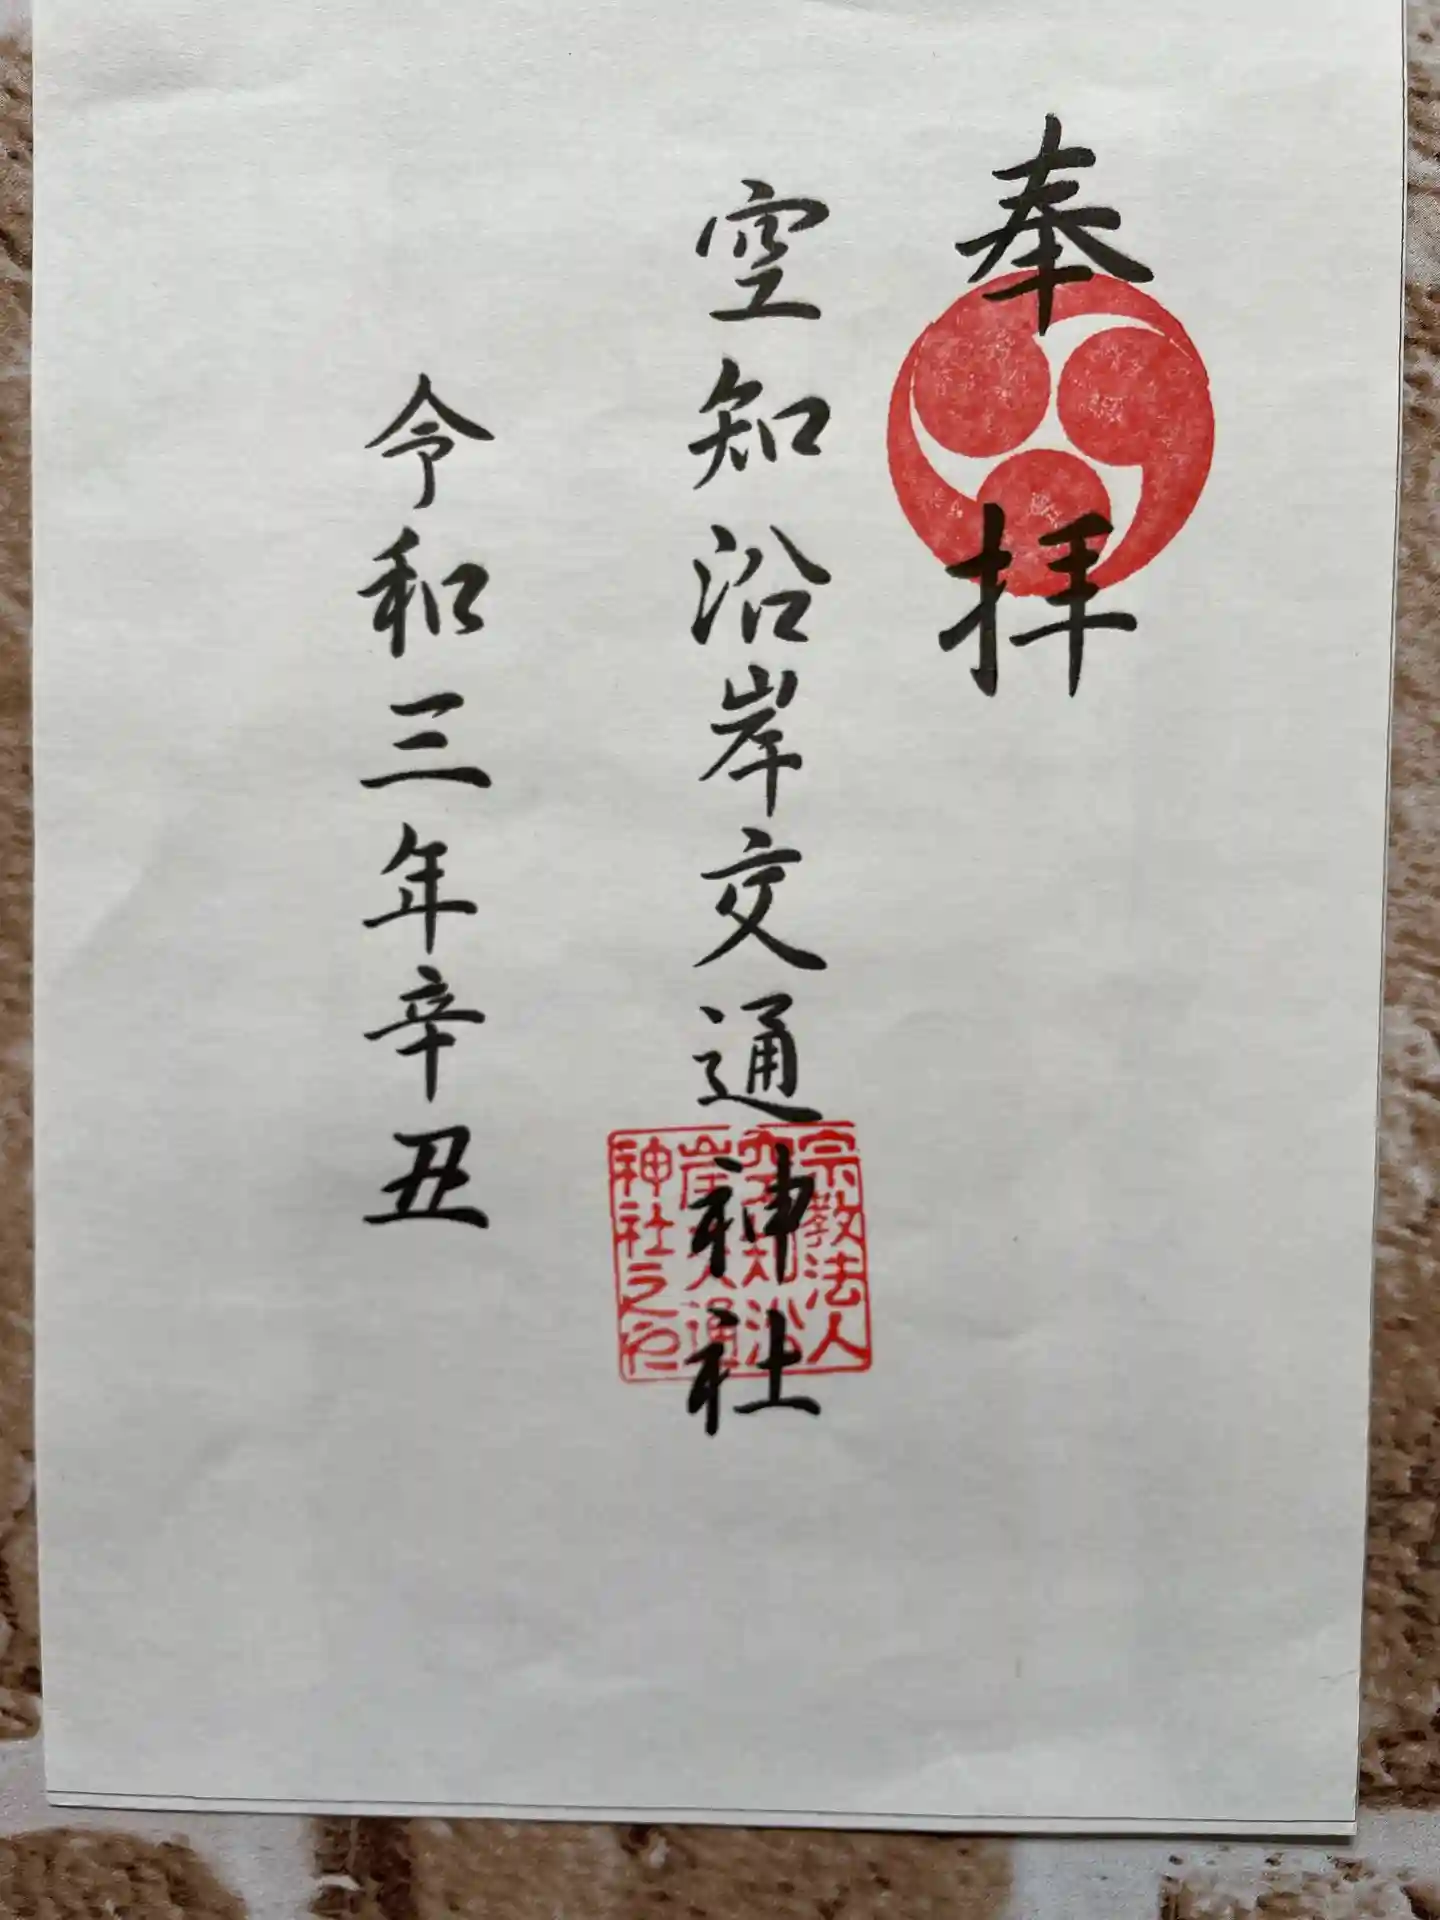 奉拝
空知沿岸交通神社
宗教法人
空知沿
岸交通
神社之印
令和三年辛丑